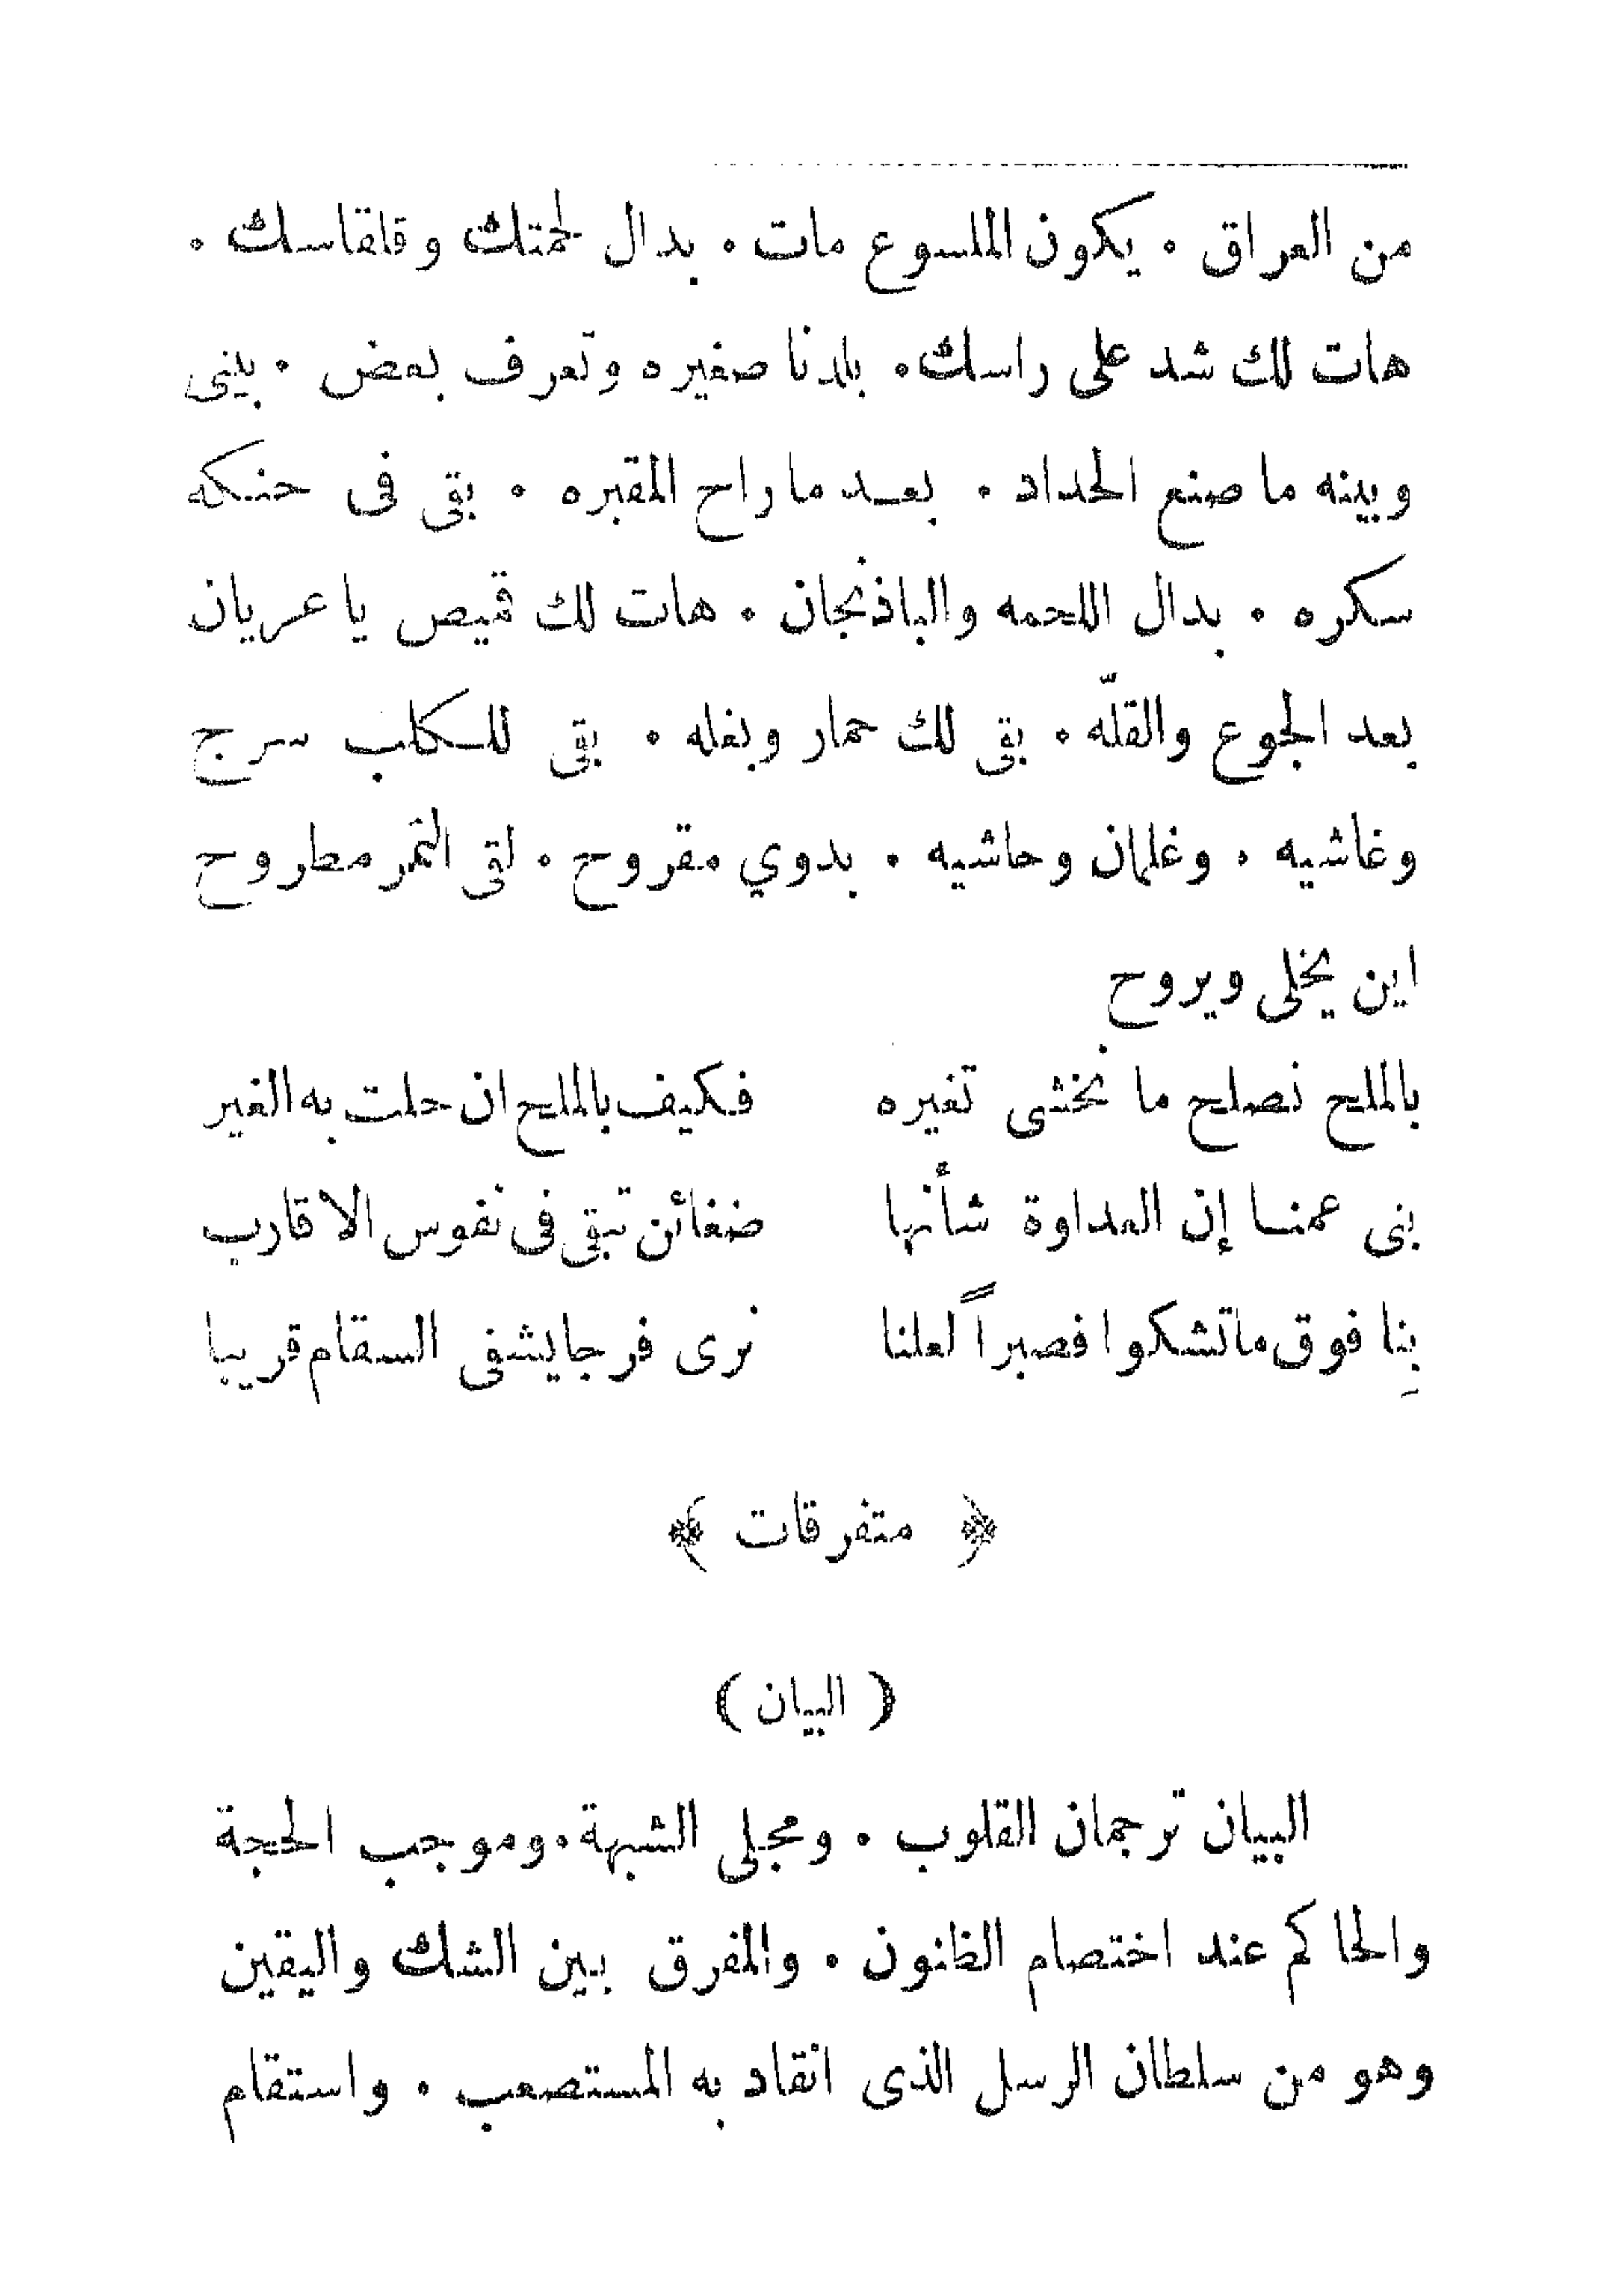 من العراق . يكون الملسوع مات . بدال لحمتك وقلقاسك .
هات لك شد على راسك . بلدنا صغيره وتعرف بعض . بينى
وبينه ما صنع الحداد . بعد ما راح المقبره . بقى فى حنكه
سكره . بدال اللحمه والباذنجان . هات لك قميص يا عريان
بعد الجوع والقلّه . بقى لك حمار وبغله . بقى للكلب سرج
وغاشيه . وغلمان وحاشيه . بدوي مقروح . لقى التمر مطروح
اين يخلى ويروح
بالملح نصلح ما نخشى تغيره فكيف بالملح ان حلت به الغير
بنى عمنا إن العداوة شأنها ضغائن تبقى فى نفوس الاقارب
بِنا فوق ماتشكوا فصبراً لعلنا نرى فرجا يشفى السقام قريبا
﴿ متفرقات ﴾
( البيان )
البيان ترجمان القلوب . ومجلى الشبهة . وموجب الحجة
والحاكم عند اختصام الظنون . والمفرق بين الشك واليقين
وهو من سلطان الرسل الذى انقاد به المستصعب . واستقام